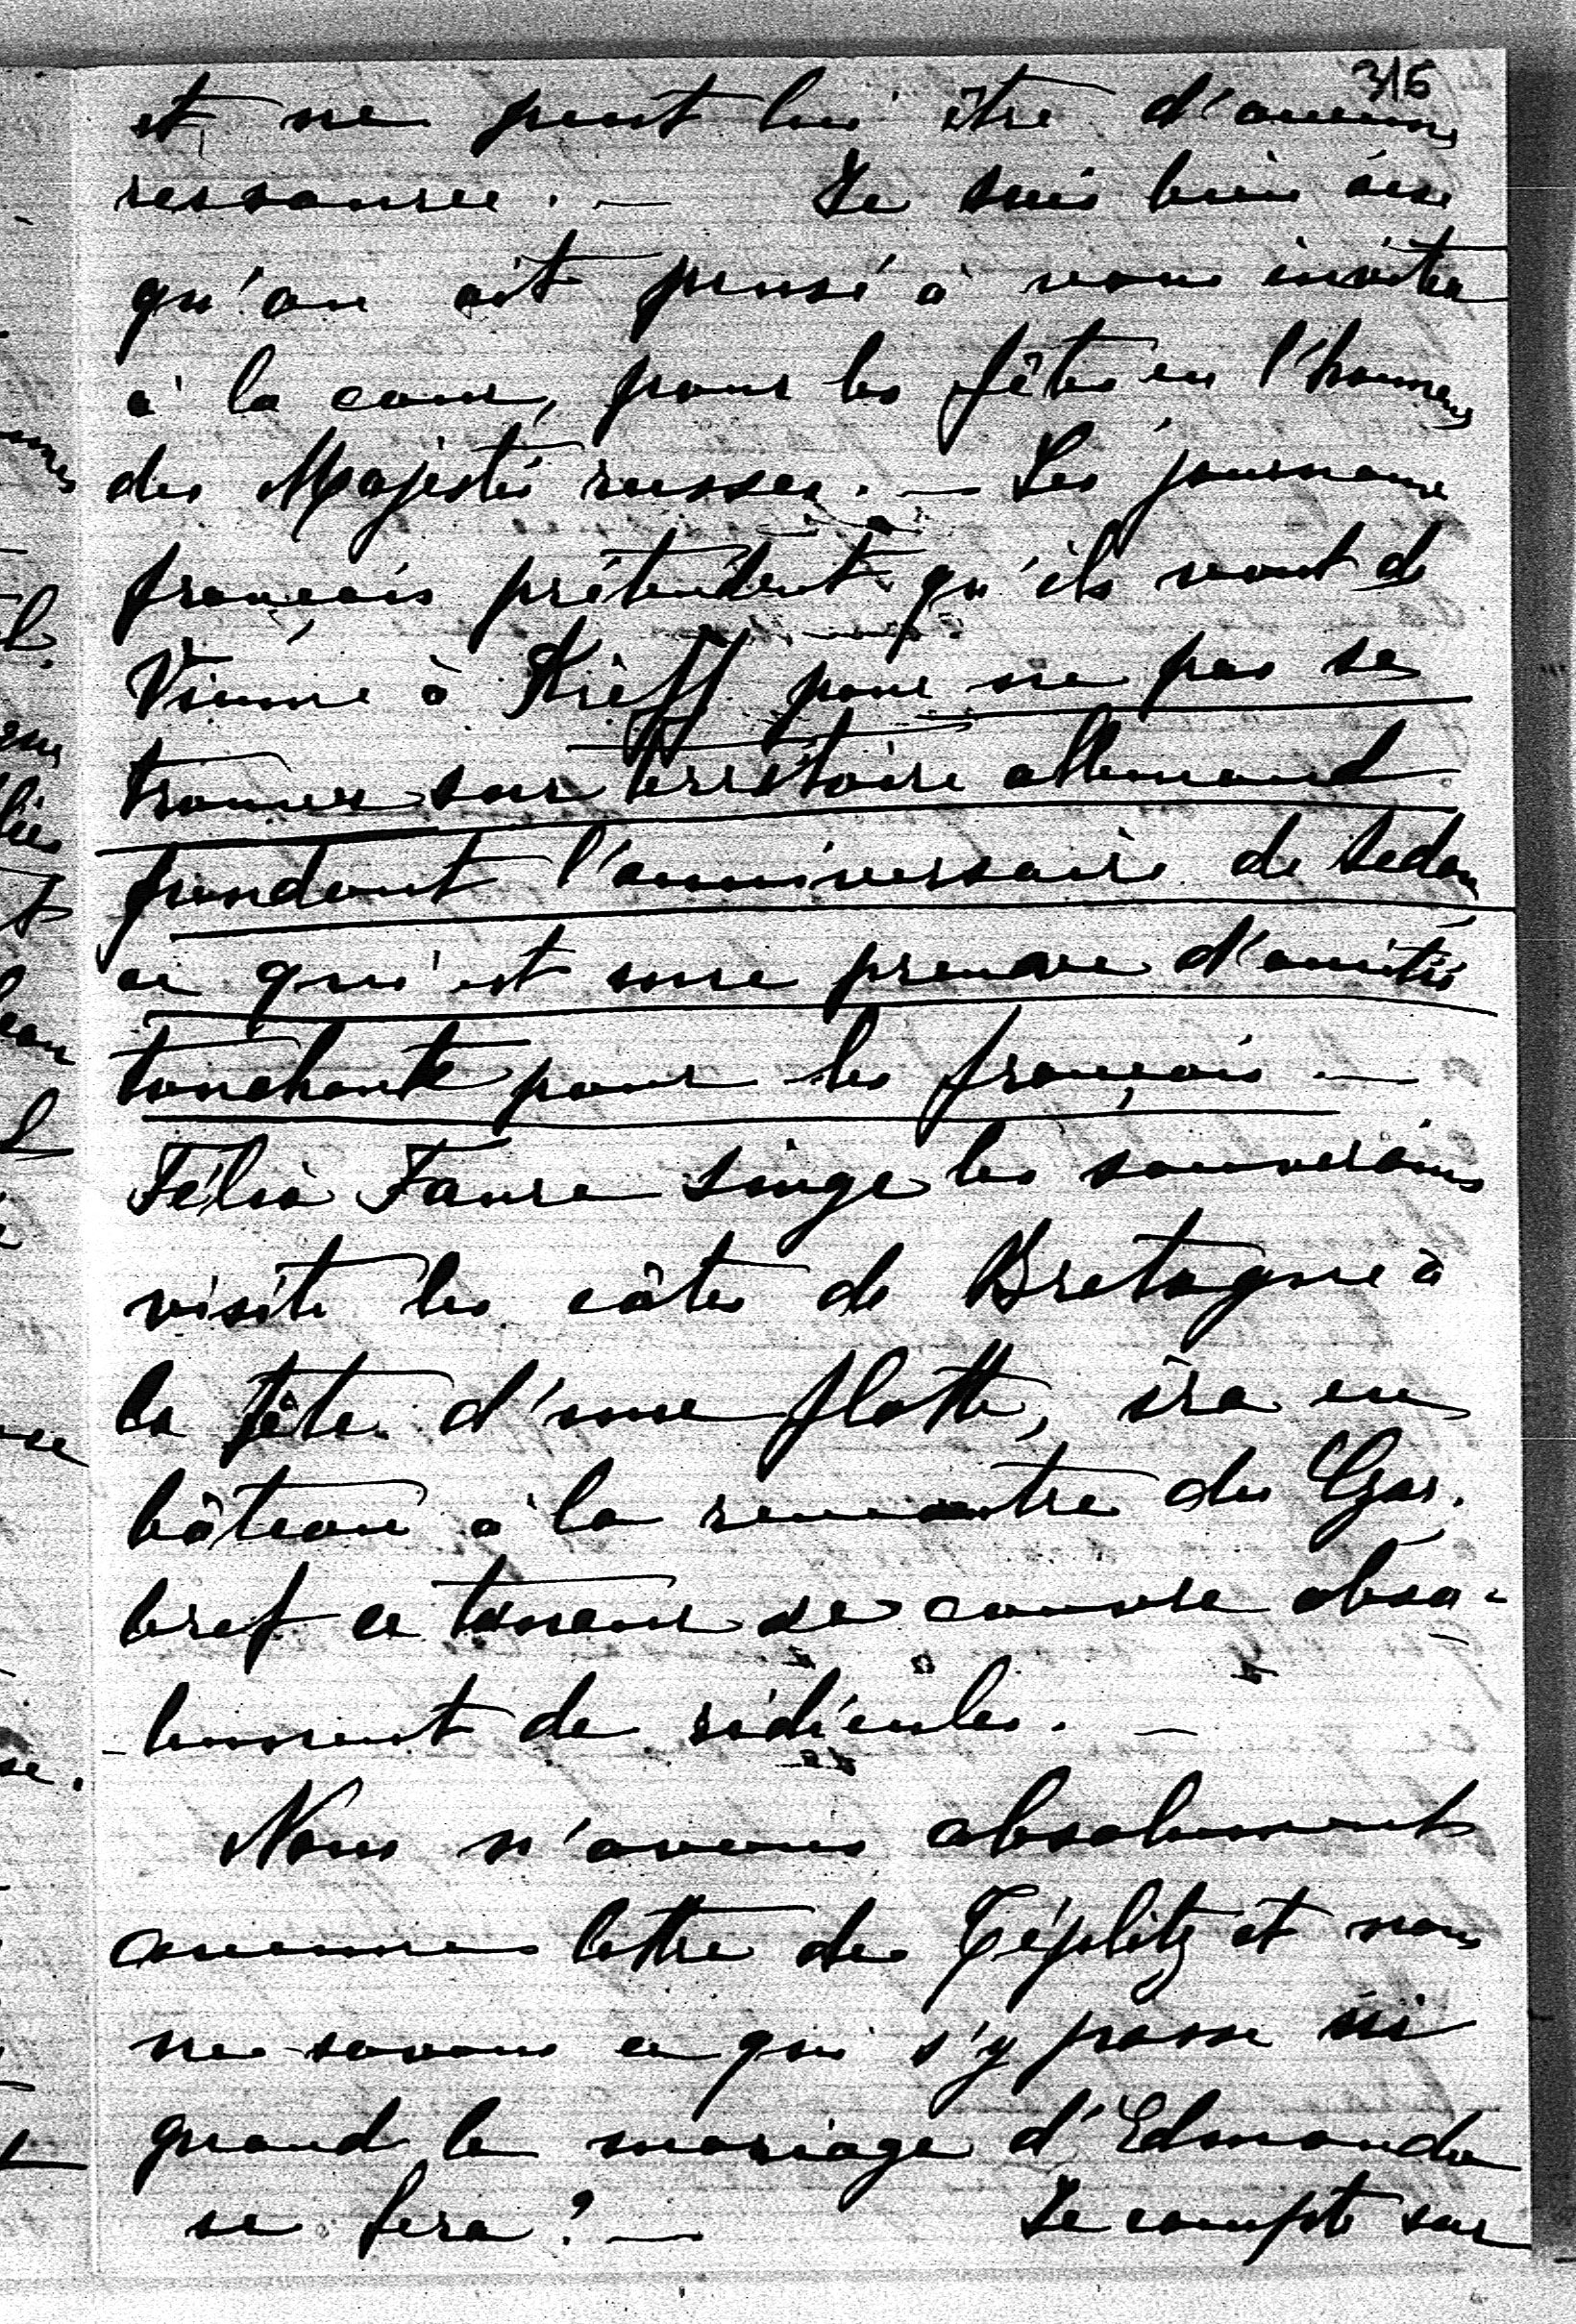 316
et ne peut lui être d'aucune
ressource. — Je suis bien aise
qu'on ait pensé à vous inviter
à la cour, pour les fêtes en l'honneur
des Majestés russes. — Les journaux
français prétendent qu'ils vont de
Vienne à Kieff pour ne pas se
trouver sur territoire allemand
pendant l'anniversaire de Sedan
ce qui est une preuve d'amitié
touchante pour les français —
Félix Faure singe les souverains
visite les côtes de Bretagne à
la tête d'une flotte, ira en
bâteau à la rencontre du Czar.
bref ce taneur se couvre abso-
-lument de ridicules. —
Nous n'avons absolument
aucune lettre de Téplitz et nous
ne savons ce qui s'y passe ni
quand le mariage d'Edmonde
se fera? — Je compte sur